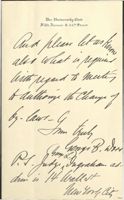 The University Club
Fifth Avenue & 54th Street
And please let us know
also what is required
with regard to meeting
to authorize the change of
by-laws.
Yours truly
George B.
P.S. Judge Ingraham
am in 14 West
New York City